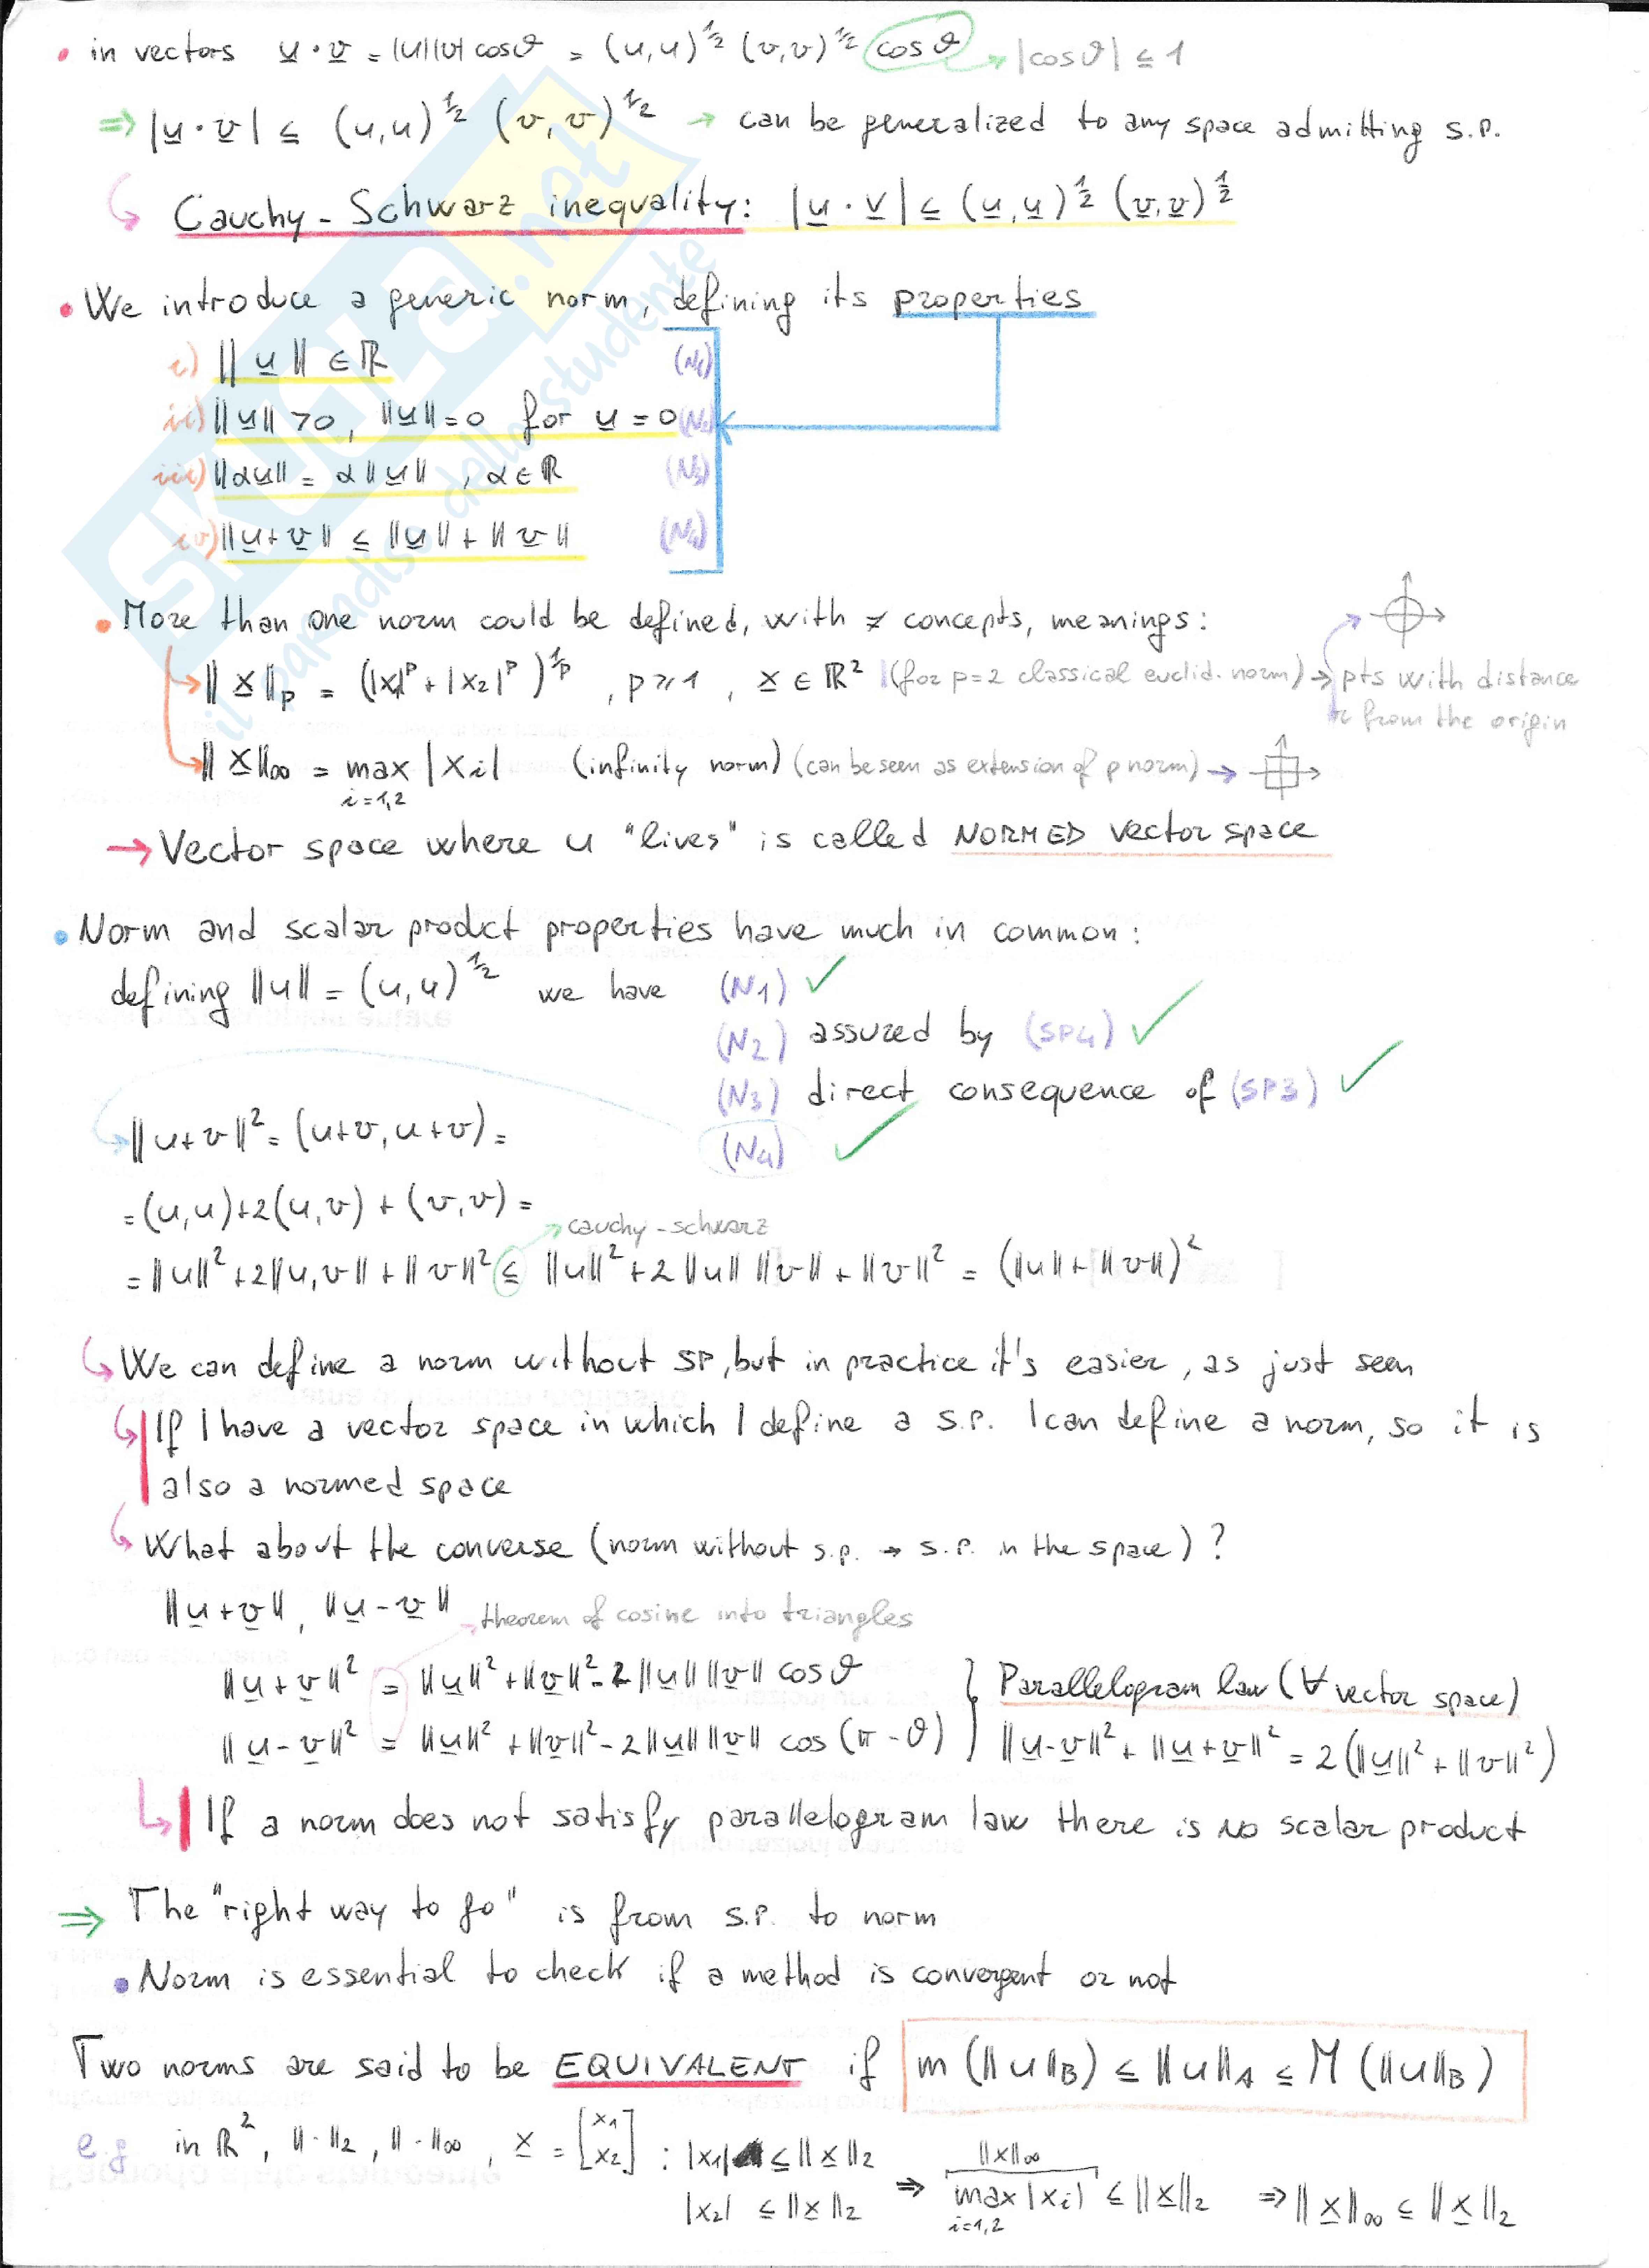 • in vectors u · v = |u||v| cosϑ = (u,u)^½ (v,v)^½ cosϑ → |cosϑ| ≤ 1
⇒ |u · v| ≤ (u,u)^½ (v,v)^½ → can be generalized to any space admitting s.p.
↳ Cauchy - Schwarz inequality: |u · v| ≤ (u,u)^½ (v,v)^½
• We introduce a generic norm, defining its properties
i) ||u|| ∈ ℝ (N1)
ii) ||u|| >0, ||u||=0 for u = 0 (N2)
iii) ||αu|| = α||u|| , α∈ℝ (N3)
iv) ||u+v|| ≤ ||u|| + ||v|| (N4)
• More than one norm could be defined, with ≠ concepts, meanings:
↳ ||x||p = (|x1|^p + |x2|^p)^1/p , p ≥ 1 , x ∈ ℝ² (for p=2 classical euclid. norm) → pts with distance
r from the origin
↳ ||x||∞ = max |xi| (infinity norm) (can be seen as extension of p norm) →
i=1,2
→ Vector space where u "lives" is called NORMED vector space
• Norm and scalar product properties have much in common:
defining ||u|| = (u,u)^½ we have (N1) ✓
(N2) assured by (SP4) ✓
(N3) direct consequence of (SP3) ✓
(N4) ✓
||u+v||² = (u+v, u+v) =
= (u,u)+2(u,v) + (v,v) =
→ cauchy - schwarz
= ||u||² +2||u,v|| + ||v||² ≤ ||u||² +2 ||u|| ||v|| + ||v||² = (||u||+||v||)²
↳ We can define a norm without SP, but in practice it's easier, as just seen
↳ If I have a vector space in which I define a s.p. I can define a norm, so it is
also a normed space
↳ What about the converse (norm without s.p. → s.p. in the space) ?
||u+v||, ||u-v|| → theorem of cosine into triangles
||u+v||² = ||u||²+||v||²-2||u|| ||v|| cosϑ } Parallelogram law (∀ vector space)
||u-v||² = ||u||² +||v||²-2||u|| ||v|| cos (π-ϑ) } ||u-v||² + ||u+v||² = 2(||u||² + ||v||²)
↳ If a norm does not satisfy parallelogram law there is no scalar product
⇒ The "right way to go" is from s.p. to norm
• Norm is essential to check if a method is convergent or not
Two norms are said to be EQUIVALENT if m (||u||B) ≤ ||u||A ≤ M (||u||B)
e.g in ℝ², ||·||2 , ||·||∞ , x = [x1 x2] : |x1| ≤ ||x||2
|x2| ≤ ||x||2 ⇒ ||x||∞ max |xi| i=1,2 ≤ ||x||2 ⇒ ||x||∞ ≤ ||x||2
SKUOLA.net
il paradiso dello studente